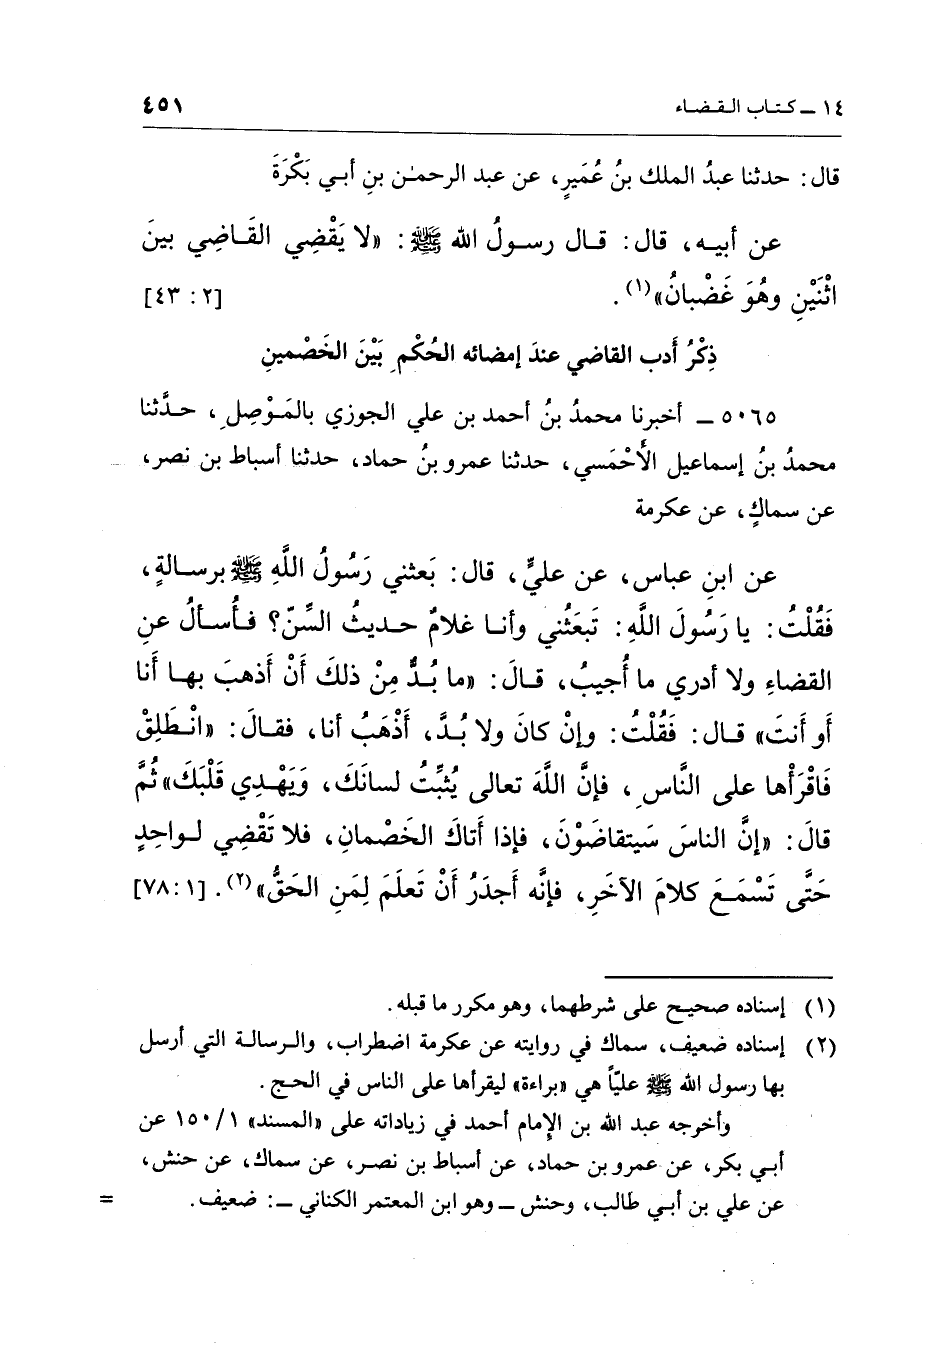 ١٤ ـ كتاب القضاء ٤٥١
قال: حدثنا عبدُ الملك بنُ عُمَيرٍ، عن عبد الرحمٰن بنِ أبي بَكْرَةَ
عن أبيه، قال: قال رسولُ الله ﷺ: «لا يَقْضِي القَاضِي بينَ
اثْنَيْنِ وهُوَ غَضْبانُ»(١). [٢: ٤٣]
ذِكْرُ أدب القاضي عندَ إمضائه الحُكْمِ بَيْنَ الخَصْمينِ
٥٠٦٥ ـ أخبرنا محمدُ بنُ أحمد بن علي الجوزي بالمَوْصِلِ، حدَّثنا
محمدُ بنُ إسماعيل الأَحْمَسي، حدثنا عمرو بنُ حماد، حدثنا أسباط بن نصر،
عن سماكٍ، عن عكرمة
عن ابنِ عباس، عن عليٍّ، قال: بَعثني رَسُولُ اللَّهِ ﷺ برسالةٍ،
فَقُلْتُ: يا رَسُولَ اللَّهِ: تَبعَثُني وأنا غلامٌ حديثُ السِّنّ؟ فأُسألُ عنِ
القضاءِ ولا أدري ما أُجيبُ، قالَ: «ما بُدٌّ مِنْ ذلكَ أَنْ أذهبَ بها أنا
أو أنتَ» قال: فَقُلْتُ: وإنْ كانَ ولا بُدَّ، أَذْهَبُ أنا، فقالَ: «انْطَلِقْ
فَاقْرَأْها على النَّاسِ، فإنَّ اللَّهَ تعالى يُثبِّتُ لسانَكَ، وَيَهْدِي قَلْبَكَ» ثُمَّ
قالَ: «إنَّ الناسَ سَيتقاضَوْنَ، فإذا أَتاكَ الخَصْمانِ، فلا تَقْضِي لواحِدٍ
حَتَّى تَسْمَعَ كلامَ الآخَرِ، فإنَّه أجدَرُ أَنْ تَعلَمَ لِمَنِ الحَقُّ»(٢). [١: ٧٨]
(١) إسناده صحيح على شرطهما، وهو مكرر ما قبله.
(٢) إسناده ضعيف، سماك في روايته عن عكرمة اضطراب، والرسالة التي أرسل
بها رسول الله ﷺ عليّاً هي «براءة» ليقرأها على الناس في الحج.
وأخرجه عبد الله بن الإمام أحمد في زياداته على «المسند» ١٥٠/١ عن
أبي بكر، عن عمرو بن حماد، عن أسباط بن نصر، عن سماك، عن حنش،
عن علي بن أبي طالب، وحنش ـ وهو ابن المعتمر الكناني ـ: ضعيف. =